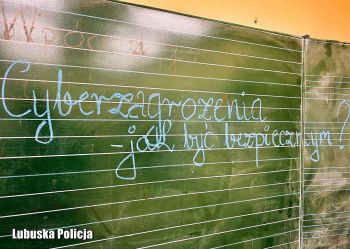 Cyberzagrożenia
-jak być bezpiecznym?
Lubuska Policja